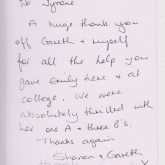 To Tyrone
A huge thank you
off Gareth & myself
for all the help you
gave Emily here & at
college, we were
absolutely thrilled with
her one A + three B's.
Thanks again
Sharon & Gareth